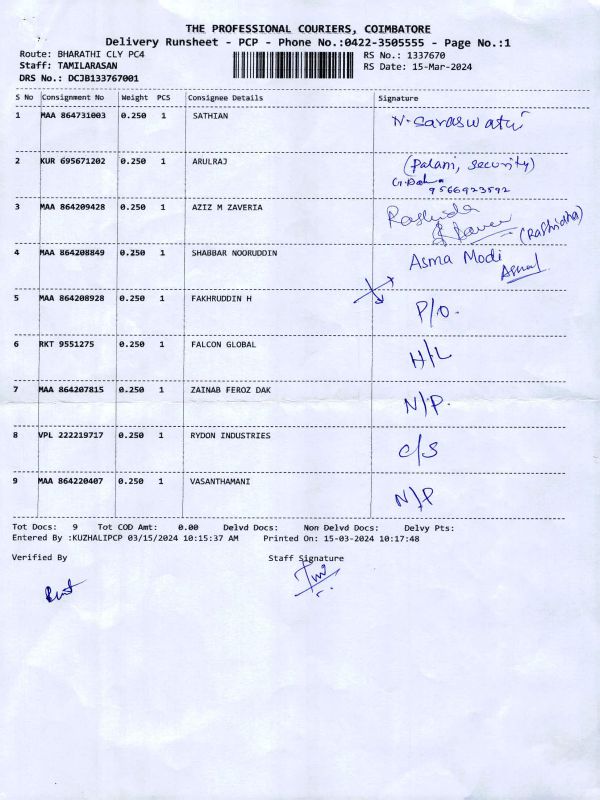 THE PROFESSIONAL COURIERS, COIMBATORE
Delivery Runsheet - PCP - Phone No.:0422-3505555 - Page No.:1
Route: BHARATHI CLY PC4 RS No.: 1337670
Staff: TAMILARASAN RS Date: 15-Mar-2024
DRS No.: DCJB133767001
S No Consignment No Weight PCS Consignee Details Signature
1 MAA 864731003 0.250 1 SATHIAN N. Saraswathi
2 KUR 695671202 0.250 1 ARULRAJ (Palani, security)
9566923592
3 MAA 864209428 0.250 1 AZIZ M ZAVERIA Rashida
(Rashidha)
4 MAA 864208849 0.250 1 SHABBAR NOORUDDIN Asma Modi
Asma
5 MAA 864208928 0.250 1 FAKHRUDDIN H P/O.
6 RKT 9551275 0.250 1 FALCON GLOBAL H/L
7 MAA 864207815 0.250 1 ZAINAB FEROZ DAK N/P.
8 VPL 222219717 0.250 1 RYDON INDUSTRIES C/S
9 MAA 864220407 0.250 1 VASANTHAMANI N/P
Tot Docs: 9 Tot COD Amt: 0.00 Delvd Docs: Non Delvd Docs: Delvy Pts:
Entered By :KUZHALIPCP 03/15/2024 10:15:37 AM Printed On: 15-03-2024 10:17:48
Verified By Staff Signature